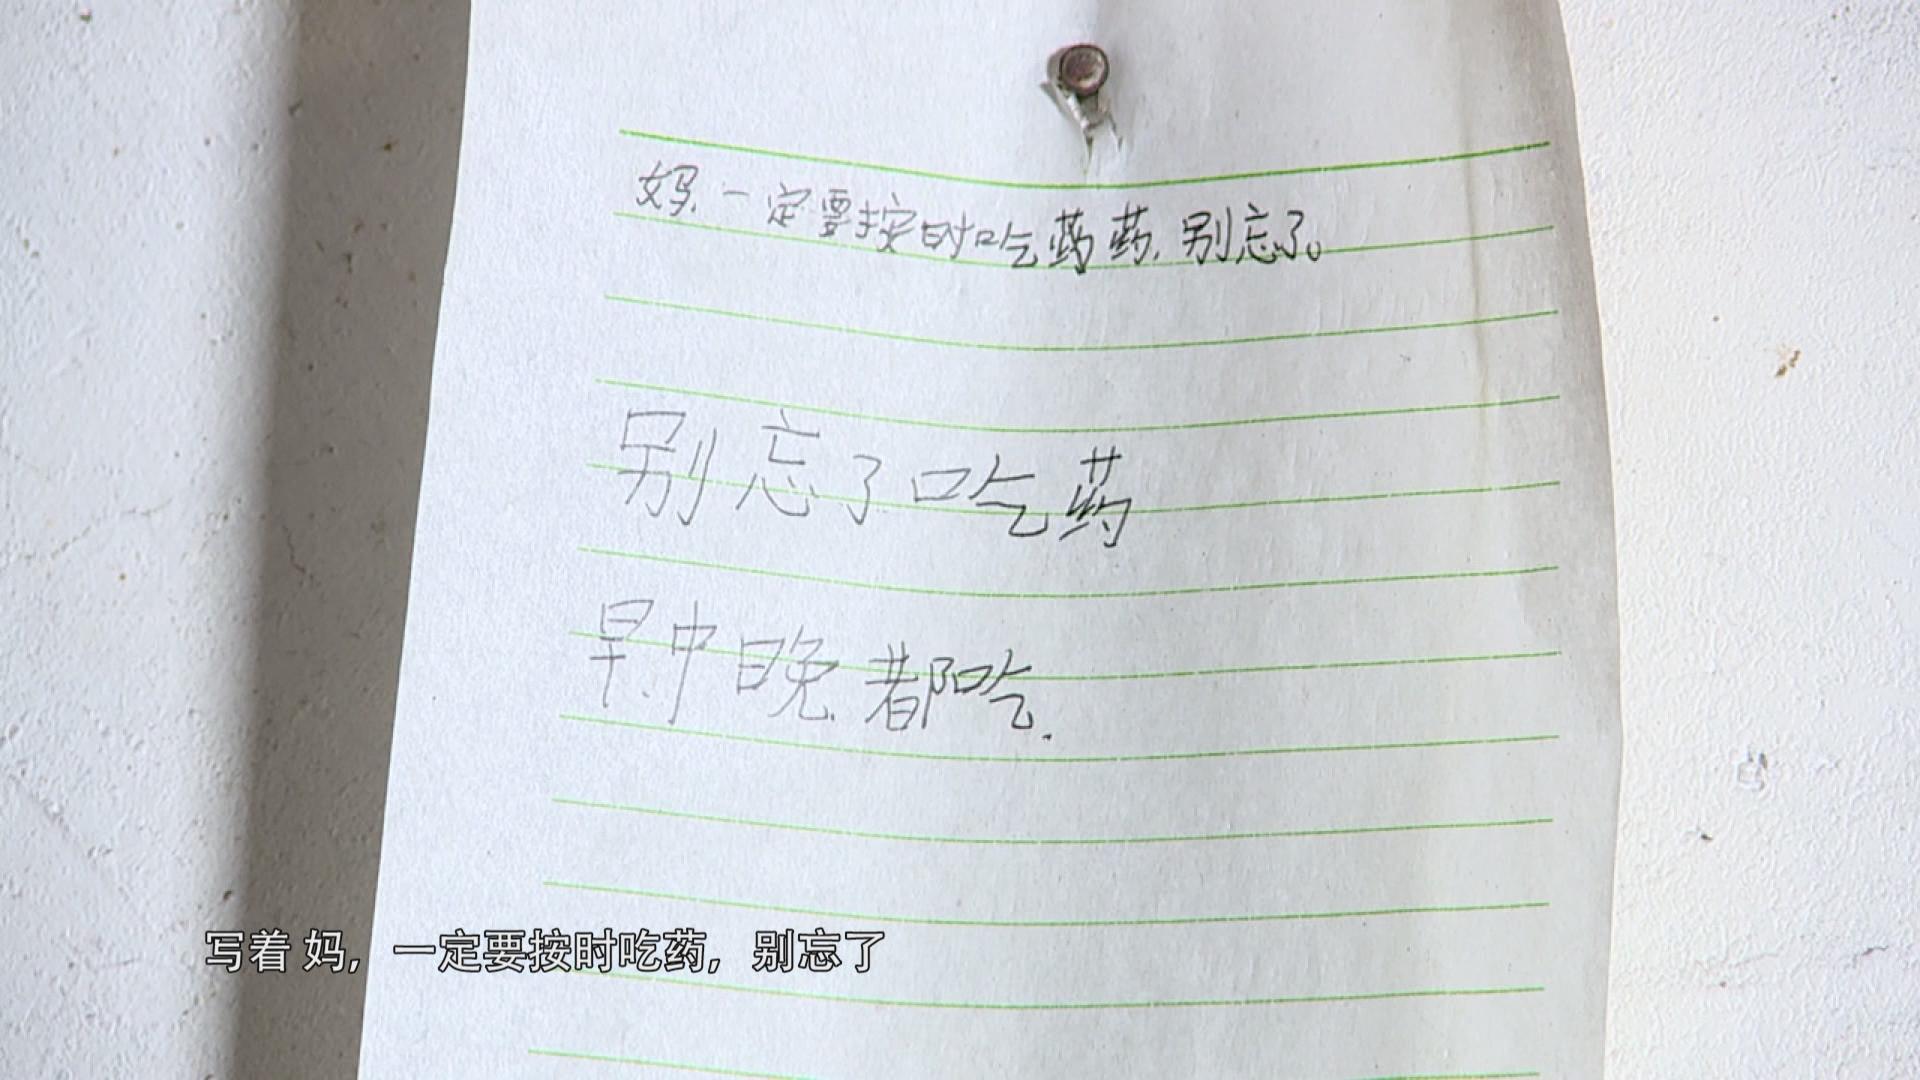 妈，一定要按时吃药药，别忘了。
别忘了吃药
早、中晚、都吃.
写着 妈，一定要按时吃药，别忘了